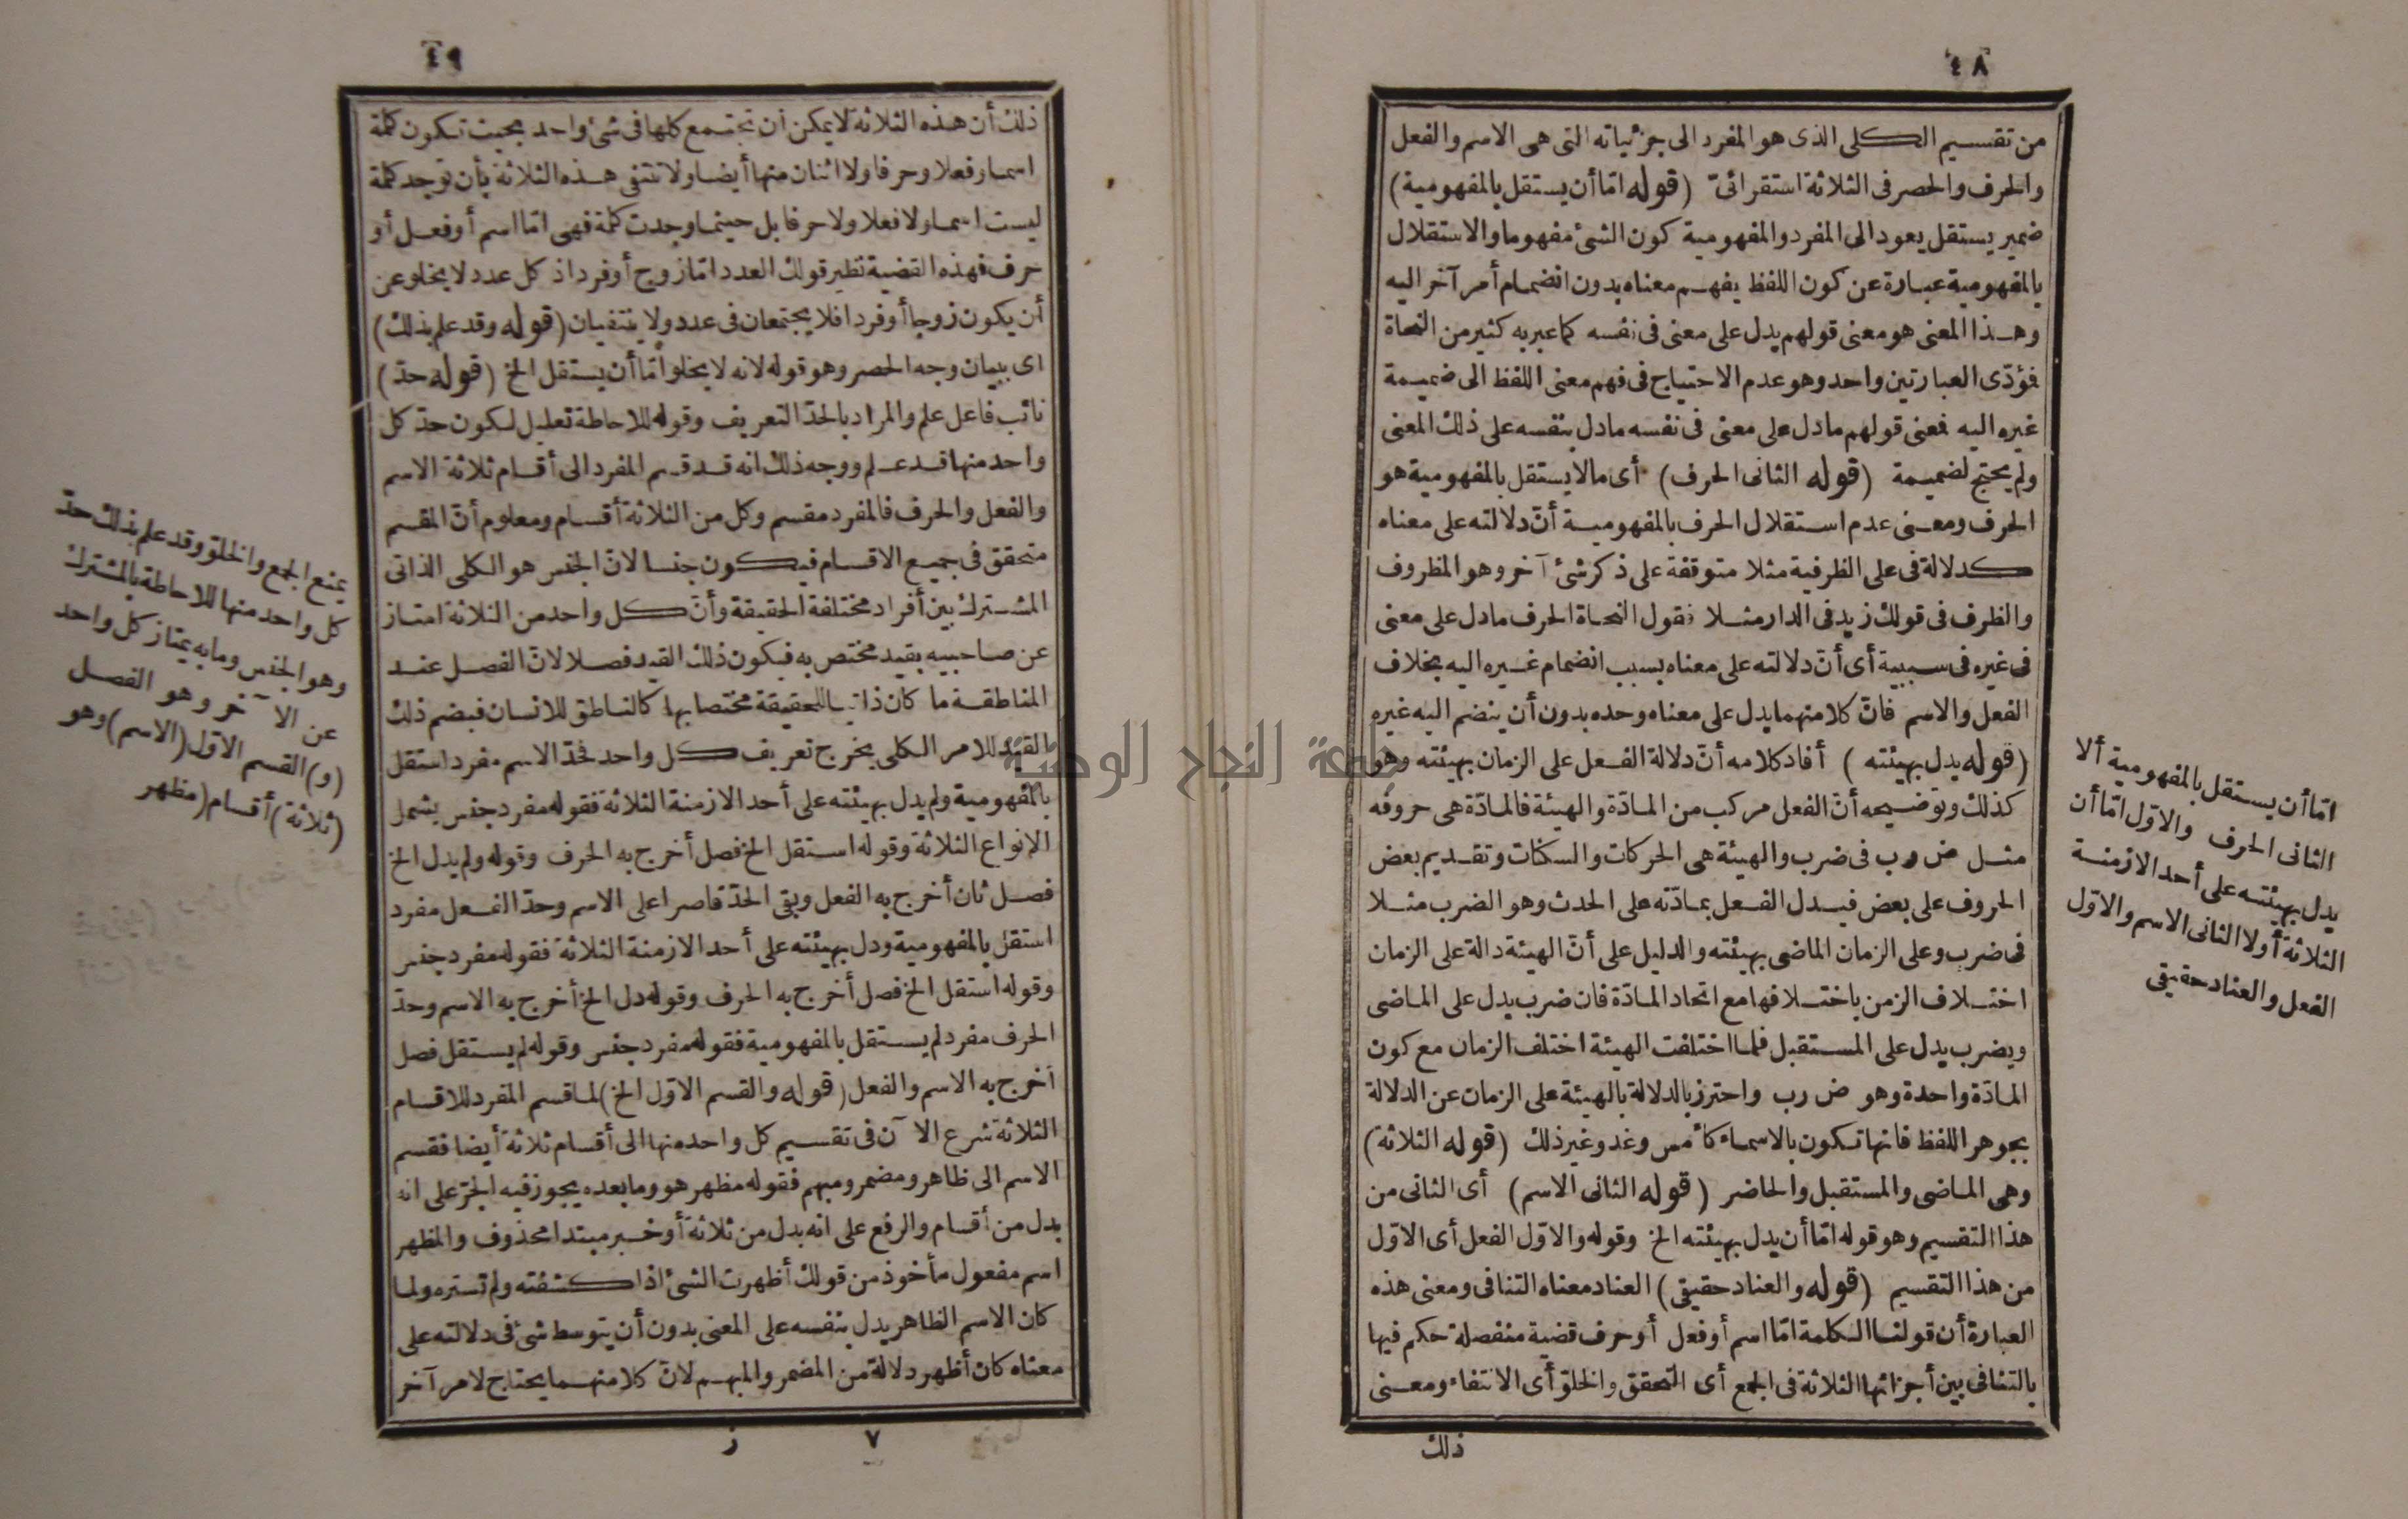 ٤٨
من تقسيم الكلى الذى هو المفرد الى جزئياته التى هى الاسم والفعل
والحرف والحصر فى الثلاثة استقرائىّ (قوله امّا أن يستقل بالمفهومية)
ضمير يستقل يعود الى المفرد والمفهومية كون الشئ مفهوما والاستقلال
بالمفهومية عبارة عن كون اللفظ يفهم معناه بدون انضمام أمر آخر اليه
وهذا المعنى هو معنى قولهم يدل على معنى فى نفسه كما عبر به كثير من النحاة
فمؤدّى العبارتين واحد وهو عدم الاحتياج فى فهم معنى اللفظ الى ضميمة
غيره اليه فمعنى قولهم ما دل على معنى فى نفسه ما دل بنفسه على ذلك المعنى
ولم يحتج لضميمة (قوله الثانى الحرف) أى ما لا يستقل بالمفهومية هو
الحرف ومعنى عدم استقلال الحرف بالمفهومية أنّ دلالته على معناه
كدلالة فى على الظرفية مثلا متوقفة على ذكر شئ آخر وهو المظروف
والظرف فى قولك زيد فى الدار مثلا فقول النحاة الحرف ما دل على معنى
فى غيره فى سببية أى أنّ دلالته على معناه بسبب انضمام غيره اليه بخلاف
الفعل والاسم فانّ كلا منهما يدل على معناه وحده بدون أن ينضم اليه غيره
(قوله يدل بهيئته) أفاد كلامه أنّ دلالة الفعل على الزمان بهيئته وهو
كذلك وتوضيحه أنّ الفعل مركب من المادّة والهيئة فالمادّة هى حروفه
مثل ض ر ب فى ضرب والهيئة هى الحركات والسكنات وتقديم بعض
الحروف على بعض فيدل الفعل بمادّته على الحدث وهو الضرب مثلا
فى ضرب وعلى الزمان الماضى بهيئته والدليل على أنّ الهيئة دالة على الزمان
اختلاف الزمن باختلافها مع اتحاد المادّة فان ضرب يدل على الماضى
ويضرب يدل على المستقبل فلما اختلفت الهيئة اختلف الزمان مع كون
المادّة واحدة وهو ض ر ب واحترز بالدلالة بالهيئة على الزمان عن الدلالة
بجوهر اللفظ فانها تكون بالاسماء كأمس وغد وغير ذلك (قوله الثلاثة)
وهى الماضى والمستقبل والحاضر (قوله الثانى الاسم) أى الثانى من
هذا التقسيم وهو قوله امّا أن يدل بهيئته الخ وقوله والاوّل الفعل أى الاوّل
من هذا التقسيم (قوله والعناد حقيقى) العناد معناه التنافى ومعنى هذه
العبارة أن قولنا الكلمة امّا اسم أو فعل أو حرف قضية منفصلة حكم فيها
بالتنافى بين أجزائها الثلاثة فى الجمع أى التحقق والخلوّ أى الانتفاء ومعنى
ذلك
امّا أن يستقل بالمفهومية ألا
الثانى الحرف والاوّل امّا أن
يدل بهيئته على أحد الازمنة
الثلاثة أولا الثانى الاسم والاوّل
الفعل والعناد حقيقى
٤٩
ذلك أن هذه الثلاثة لا يمكن أن تجتمع كلها فى شئ واحد بحيث تكون كلمة
اسما وفعلا وحرفا ولا اثنان منها أيضا ولا تنتفى هذه الثلاثة بأن توجد كلمة
ليست اسما ولا فعلا ولا حرفا بل حيثما وجدت كلمة فهى امّا اسم أو فعل أو
حرف فهذه القضية نظير قولك العدد امّا زوج أو فرد اذ كل عدد لا يخلو عن
أن يكون زوجا أو فردا فلا يجتمعان فى عدد ولا ينتفيان (قوله وقد علم بذلك)
اى ببيان وجه الحصر وهو قوله لانه لا يخلو امّا أن يستقل الخ (قوله حدّ)
نائب فاعل علم والمراد بالحدّ التعريف وقوله للاحاطة تعليل لكون حدّ كل
واحد منها قد علم ووجه ذلك انه قد قسم المفرد الى أقسام ثلاثة الاسم
والفعل والحرف فالمفرد مقسم وكل من الثلاثة أقسام ومعلوم أنّ المقسم
متحقق فى جميع الاقسام فيكون جنسا لانّ الجنس هو الكلى الذاتى
المشترك بين أفراد مختلفة الحقيقة وأنّ كل واحد من الثلاثة امتاز
عن صاحبيه بقيد مختص به فيكون ذلك القيد فصلا لانّ الفصل عند
المناطقة ما كان ذاتيا للحقيقة مختصا بها كالناطق للانسان فبضم ذلك
القيد للامر الكلى يخرج تعريف كل واحد فحدّ الاسم مفرد استقل
بالمفهومية ولم يدل بهيئته على أحد الازمنة الثلاثة فقوله مفرد جنس يشمل
الانواع الثلاثة وقوله استقل الخ فصل أخرج به الحرف وقوله ولم يدل الخ
فصل ثان أخرج به الفعل وبقى الحدّ قاصرا على الاسم وحدّ الفعل مفرد
استقل بالمفهومية ودل بهيئته على أحد الازمنة الثلاثة فقوله مفرد جنس
وقوله استقل الخ فصل أخرج به الحرف وقوله دل الخ أخرج به الاسم وحدّ
الحرف مفرد لم يستقل بالمفهومية فقوله مفرد جنس وقوله لم يستقل فصل
أخرج به الاسم والفعل (قوله والقسم الاوّل الخ) لما قسم المفرد للاقسام
الثلاثة شرع الآن فى تقسيم كل واحد منها الى أقسام ثلاثة أيضا فقسم
الاسم الى ظاهر ومضمر ومبهم فقوله مظهر هو وما بعده يجوز فيه الجرّ على انه
بدل من أقسام والرفع على انه بدل من ثلاثة أو خبر مبتدا محذوف والمظهر
اسم مفعول مأخوذ من قولك أظهرت الشئ اذا كشفته ولم تستره ولما
كان الاسم الظاهر يدل بنفسه على المعنى بدون أن يتوسط شئ فى دلالته على
معناه كان أظهر دلالة من المضمر والمبهم لانّ كلا منهما يحتاج لامر آخر
٧ ز
يمنع الجمع والخلوّ وقد علم بذلك حدّ
كل واحد منها للاحاطة بالمشترك
وهو الجنس وما به يمتاز كل واحد
عن الآخر وهو الفصل
(و) القسم الاوّل (الاسم) وهو
(ثلاثة) أقسام (مظهر
جامعة النجاح الوطنية